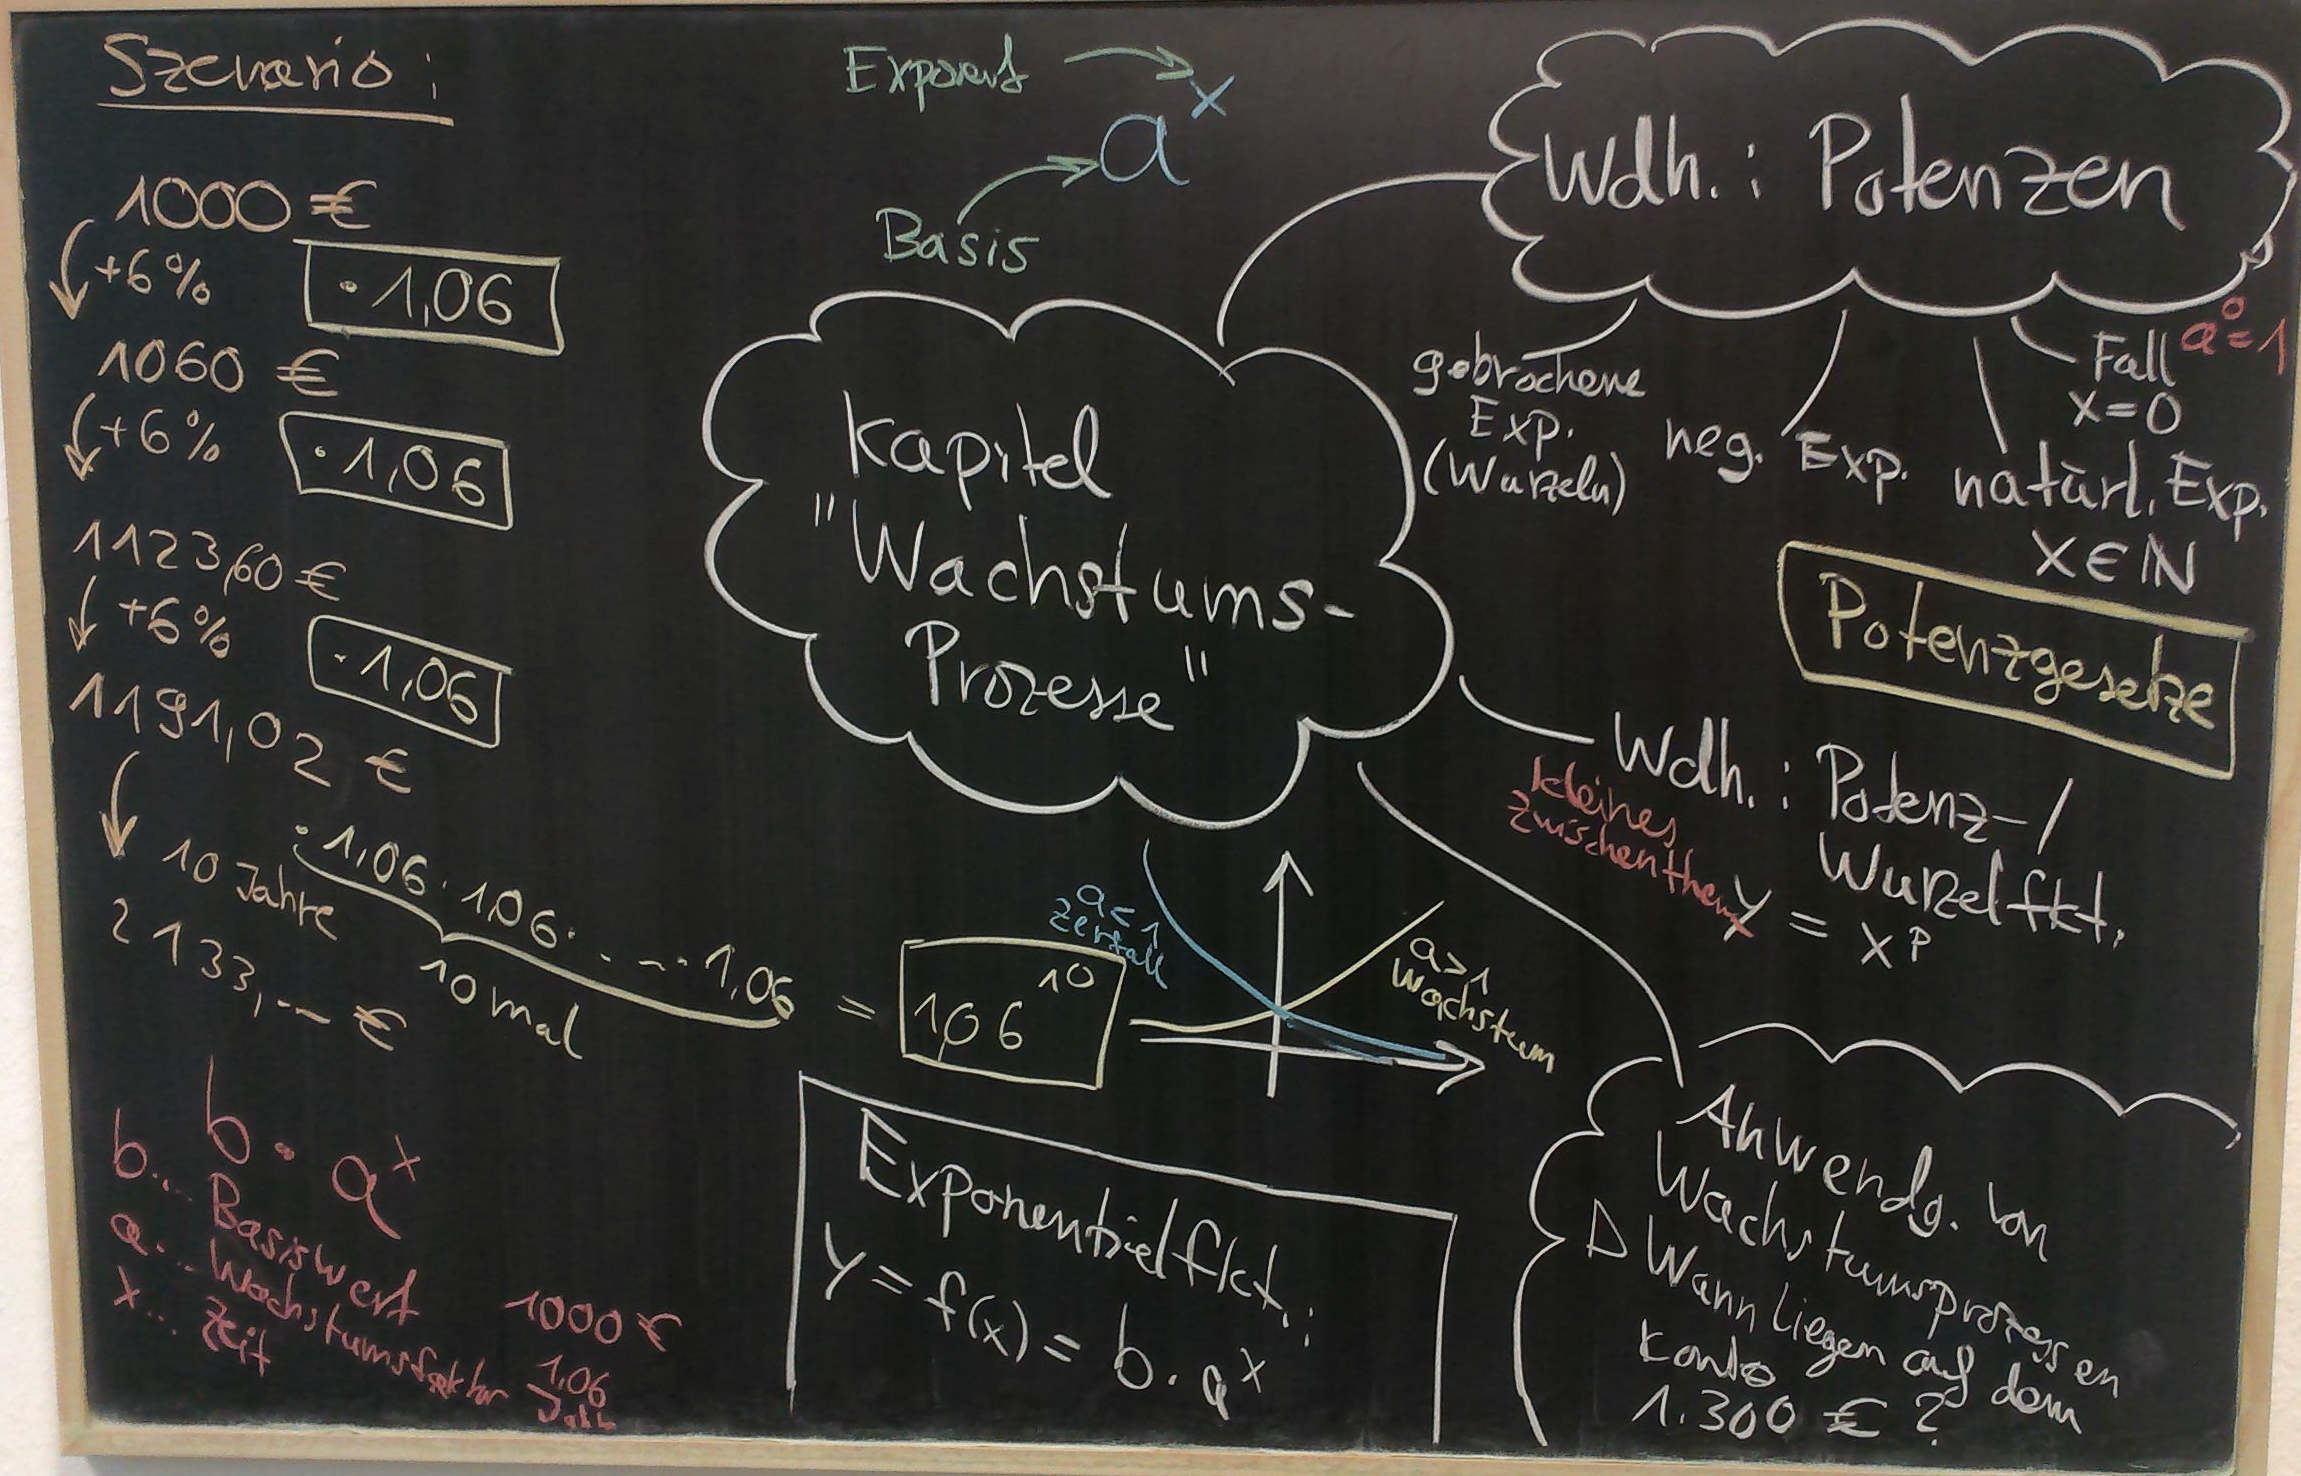 Szenario:
1000 €
+6%
· 1,06
1060 €
+6%
· 1,06
1123,60 €
+6%
· 1,06
1191,02 €
10 Jahre
· 1,06 · 1,06 · . . . · 1,06
10 mal
= 1,06^10
2133,-- €
b · a^x
b... Basiswert 1000 €
a... Wachstumsfaktor 1,06
x... Zeit Jahr
Exponent
a^x
Basis
Kapitel
"Wachstums-
Prozesse"
a<1
Zerfall
a>1
Wachstum
Exponentialfkt.:
y = f(x) = b · a^x
Wdh.: Potenzen
gebrochene
Exp.
(Wurzeln)
neg. Exp.
natürl. Exp.
x ∈ ℕ
Fall
x=0
a^0=1
Potenzgesetze
Wdh.: Potenz-/
Wurzelfkt.
y = x^p
kleines
Zwischenthema
Anwendg. von
Wachstumsprozessen
▷ Wann liegen auf dem
Konto
1.300 € ?